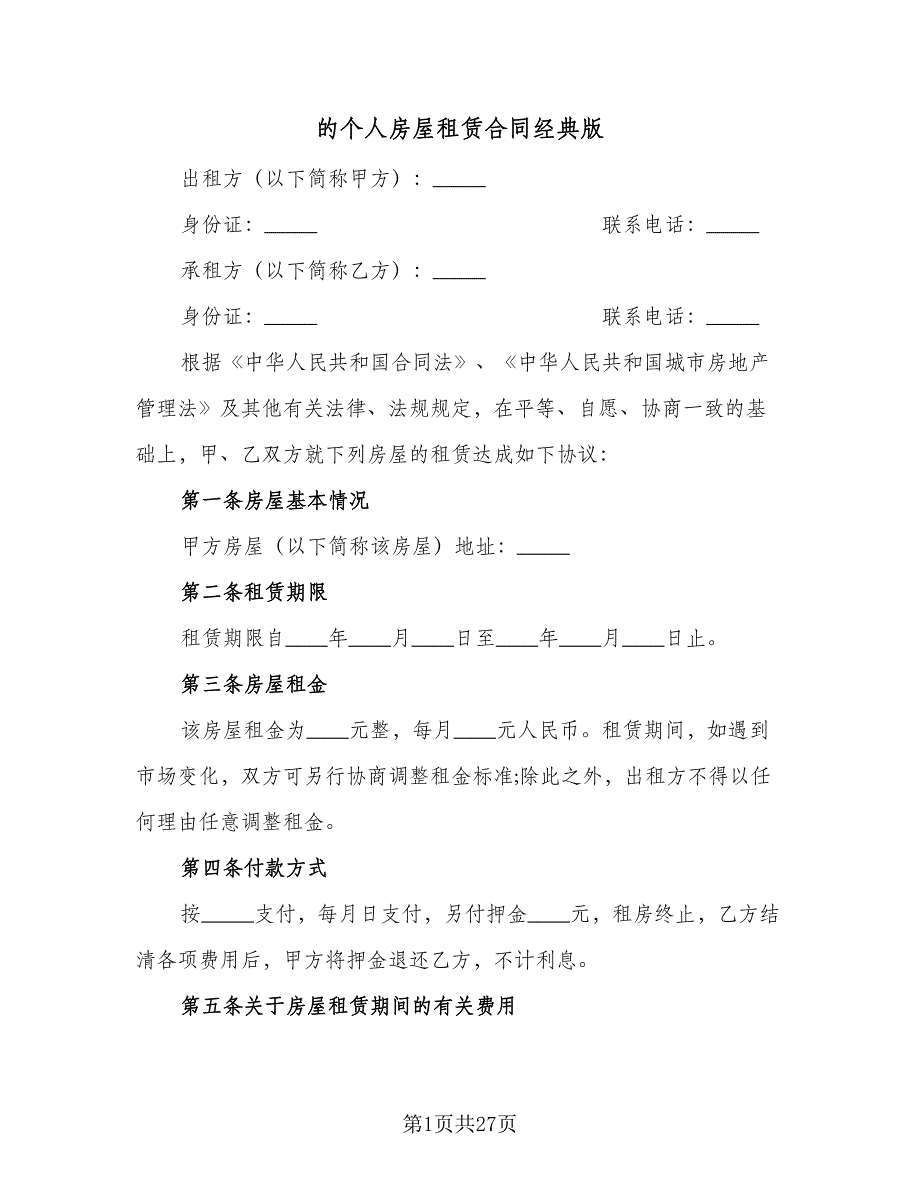 的个人房屋租赁合同经典版
出租方（以下简称甲方）：_____
身份证：_____ 联系电话：_____
承租方（以下简称乙方）：_____
身份证：_____ 联系电话：_____
根据《中华人民共和国合同法》、《中华人民共和国城市房地产
管理法》及其他有关法律、法规规定，在平等、自愿、协商一致的基
础上，甲、乙双方就下列房屋的租赁达成如下协议：
第一条房屋基本情况
甲方房屋（以下简称该房屋）地址：_____
第二条租赁期限
租赁期限自____年____月____日至____年____月____日止。
第三条房屋租金
该房屋租金为____元整，每月____元人民币。租赁期间，如遇到
市场变化，双方可另行协商调整租金标准;除此之外，出租方不得以任
何理由任意调整租金。
第四条付款方式
按_____支付，每月日支付，另付押金____元，租房终止，乙方结
清各项费用后，甲方将押金退还乙方，不计利息。
第五条关于房屋租赁期间的有关费用
第1页共27页